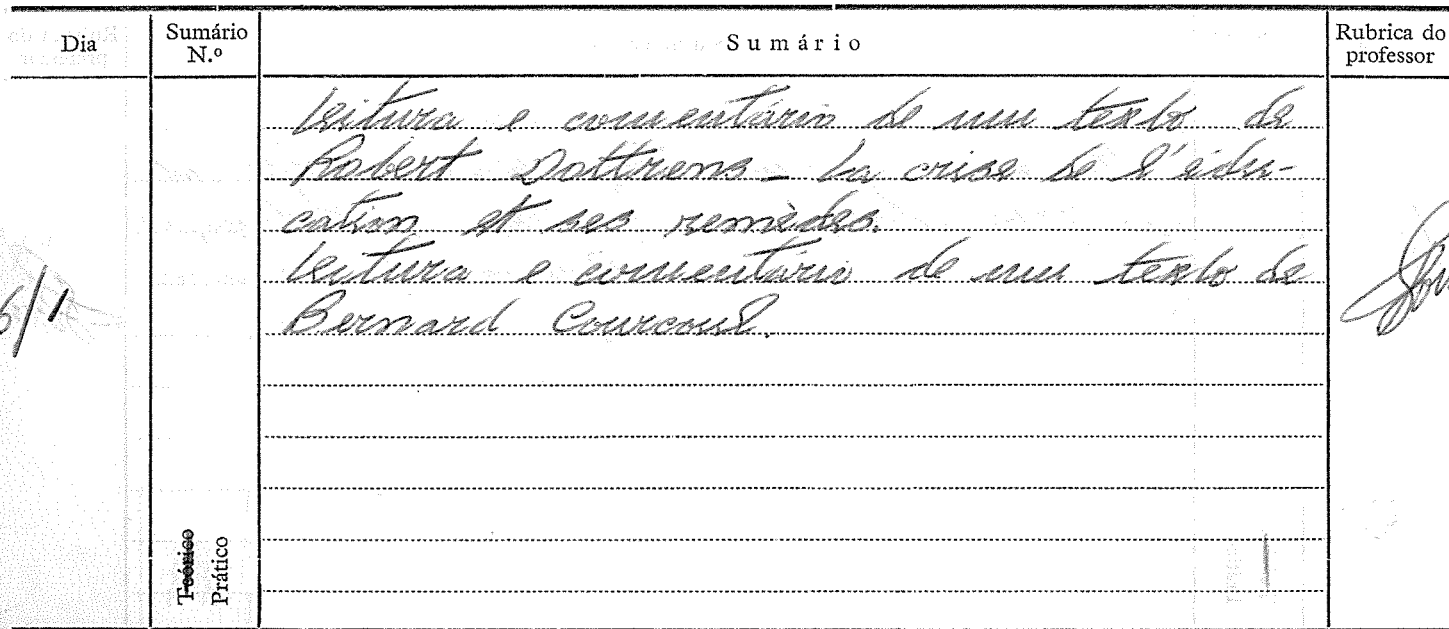 Dia
Sumário N.º
Sumário
Rubrica do professor
Leitura e comentário de um texto de
Robert Dottrens - La crise de l'édu-
cation et ses remèdes.
6/1
Leitura e comentário de um texto de
Bernard Courcoul.
Teórico
Prático